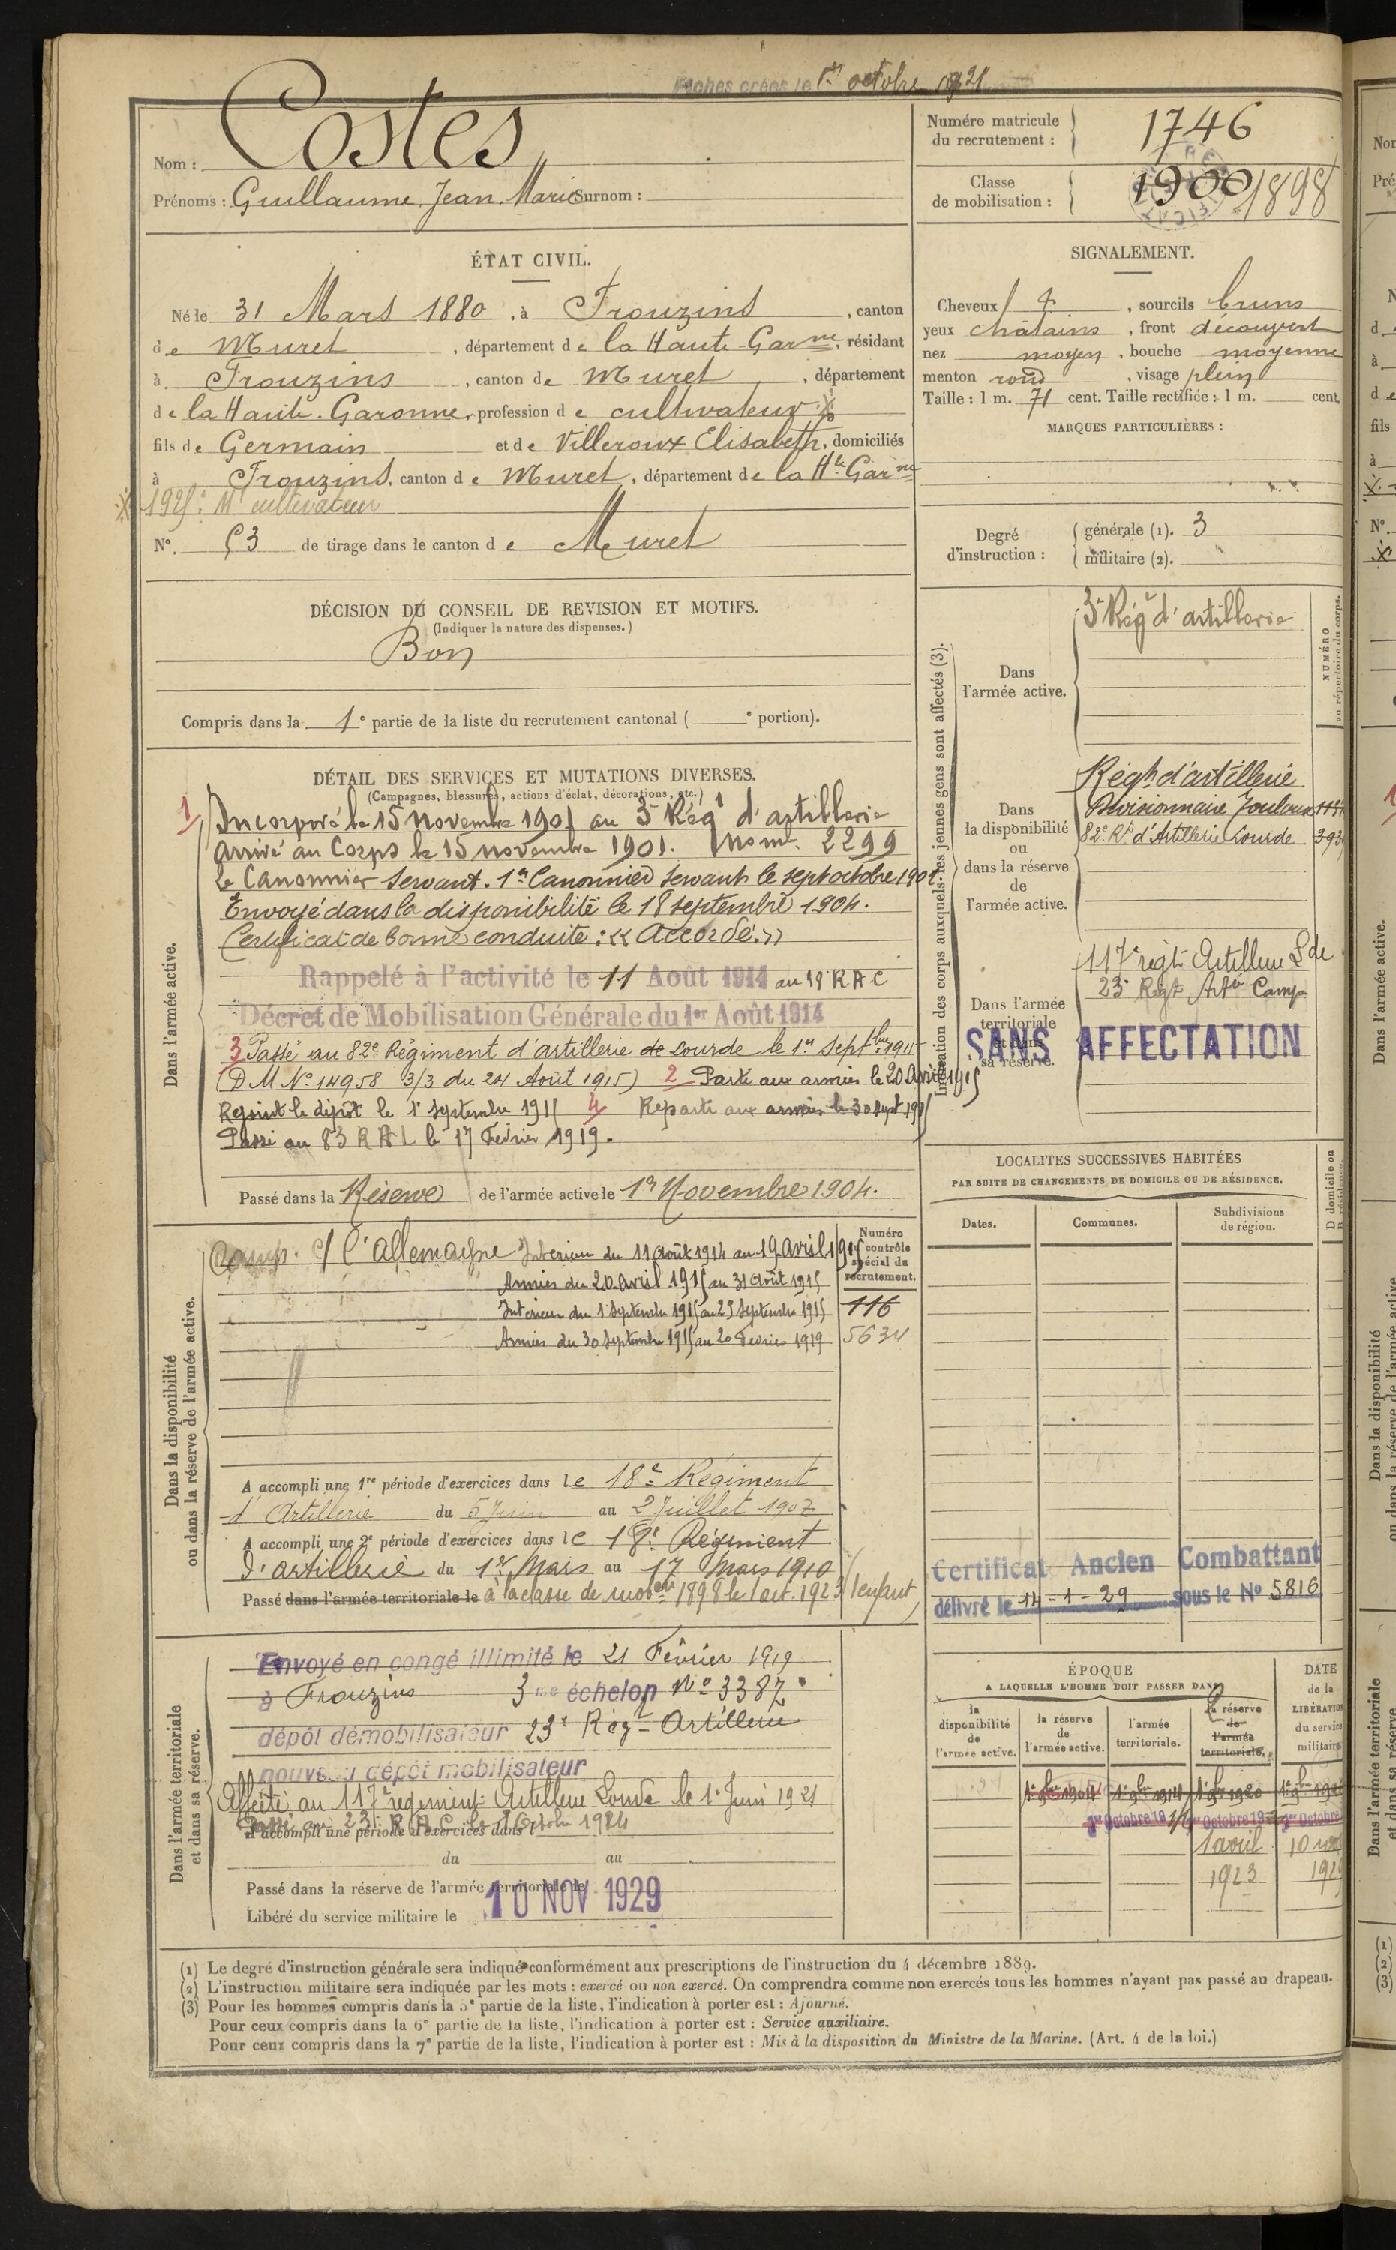 Fiches créés le 1er octobre 1921
Nom : Costes
Prénoms : Guillaume Jean Marie Surnom :
Numéro matricule du recrutement : 1746
Classe de mobilisation : 1900 1898
ÉTAT CIVIL.
Né le 31 Mars 1880, à Frouzins, canton
de Muret, département de la Haute-Garnne, résidant
à Frouzins, canton de Muret, département
de la Haute-Garonne, profession de cultivateur
fils de Germain et de Villeroux Elisabeth, domiciliés
à Frouzins, canton de Muret, département de la Hte Garnne
Md cultivateur
N°. 53 de tirage dans le canton de Muret
SIGNALEMENT.
Cheveux, sourcils bruns
yeux châtains, front découvert
nez moyen, bouche moyenne
menton rond, visage plein
Taille : 1 m. 71 cent. Taille rectifiée : 1 m. cent.
MARQUES PARTICULIÈRES :
Degré d'instruction : générale (1). 3
militaire (2).
DÉCISION DU CONSEIL DE REVISION ET MOTIFS.
(Indiquer la nature des dispenses.)
Bon
Compris dans la 1e partie de la liste du recrutement cantonal ( e portion).
Indication des corps auxquels les jeunes gens sont affectés (3).
NUMÉRO
au répertoire du corps.
Dans l'armée active.
3e Régt d'artillerie
Dans la disponibilité ou dans la réserve de l'armée active.
Régt d'artillerie
Divisionnaire Toulouse
82e Rt d'Artillerie Lourde
Dans l'armée territoriale et dans sa réserve.
117e régt Artillerie Lde
23e Régt Artie Camp
SANS AFFECTATION
DÉTAIL DES SERVICES ET MUTATIONS DIVERSES.
(Campagnes, blessures, actions d'éclat, décorations, etc.)
Dans l'armée active.
1 Incorporé le 15 novembre 1901 au 3e Régt d'artillerie
arrivé au Corps le 15 novembre 1901. No ml. 2299
le Canonnier servant. 1er Canonnier servant le sept octobre 1902.
Envoyé dans la disponibilité le 18 septembre 1904.
Certificat de bonne conduite : « Accordé. »
Rappelé à l'activité le 11 Août 1914 au 18 RAC
Décret de Mobilisation Générale du 1er Août 1914
3 Passé au 82e Régiment d'artillerie de Lourde le 1er Septbre 1915
(D M No 14958 3/3 du 24 Août 1915) 2 Parti aux armées le 20 avril 1915
Rejoint le dépôt le 1r Septembre 1915 4 Reparti aux armées le 30 sept 1915
Passé au 83 RAL le 17 Février 1919.
Passé dans la Réserve de l'armée active le 1er Novembre 1904.
Dans la disponibilité ou dans la réserve de l'armée active.
Camp. c/ l'allemagne Intérieur du 11 août 1914 au 19 avril 1915
Armées du 20 avril 1915 au 31 août 1915
Intérieur du 1 Septembre 1915 au 29 Septembre 1915
Armées du 30 Septembre 1915 au 20 Février 1919
Numéro contrôle spécial du recrutement.
116
5634
A accompli une 1re période d'exercices dans le 18e Régiment
d'Artillerie du 5 Juin au 2 Juillet 1907
A accompli une 2e période d'exercices dans le 18e Régiment
d'artillerie du 1er Mars au 17 Mars 1910
Passé dans l'armée territoriale le à la classe de mobon 1898 le 1 oct. 1923 1 enfant
LOCALITÉS SUCCESSIVES HABITÉES
PAR SUITE DE CHANGEMENTS DE DOMICILE OU DE RÉSIDENCE.
Dates.
Communes.
Subdivisions de région.
D domicile ou R résidence.
Certificat Ancien Combattant
délivré le 14-1-29 sous le No 5816
Dans l'armée territoriale et dans sa réserve.
Envoyé en congé illimité le 21 Février 1919
à Frouzins 3me échelon No 3387
dépôt démobilisateur 23e Régt Artillerie
nouveau dépôt mobilisateur
Affecté au 117e régiment Artillerie Lourde le 1r Juin 1921
Passé au 23e R.A.C. le 1 Octobre 1924
A accompli une période d'exercices dans
du au
Passé dans la réserve de l'armée territoriale le
Libéré du service militaire le 10 NOV 1929
ÉPOQUE
A LAQUELLE L'HOMME DOIT PASSER DANS
la disponibilité de l'armée active.
la réserve de l'armée active.
l'armée territoriale.
la réserve de l'armée territoriale.
DATE de la LIBÉRATION du service militaire
1er 9bre 1904
1er 9bre 1914
1er 9bre 1920
1er Octobre 19
1 avril 1923
(1) Le degré d'instruction générale sera indiqué conformément aux prescriptions de l'instruction du 4 décembre 1889.
(2) L'instruction militaire sera indiquée par les mots : exercé ou non exercé. On comprendra comme non exercés tous les hommes n'ayant pas passé au drapeau.
(3) Pour les hommes compris dans la 5e partie de la liste, l'indication à porter est : Ajourné.
Pour ceux compris dans la 6e partie de la liste, l'indication à porter est : Service auxiliaire.
Pour ceux compris dans la 7e partie de la liste, l'indication à porter est : Mis à la disposition du Ministre de la Marine. (Art. 4 de la loi.)